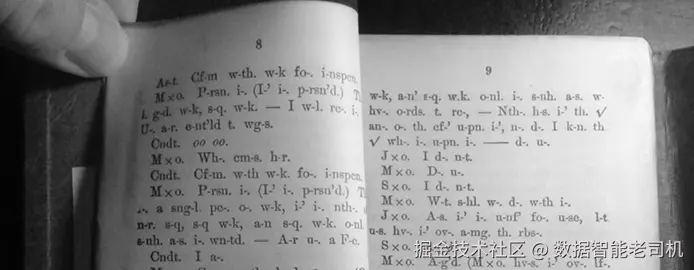 8
As-t. Cf-m w-th. w-k fo-. i-nspen.
M×o. P-rsn. i-. (I-' i-. p-rsn'd.)
g-d. w-k, s-q. w-k. — I w-l. re-. i-.
U-. a-r. e-nt'ld t. wg-s.
Cndt. oo oo.
M×o. Wh-. cm-s. h-r.
Cndt. Cf-m. w-th w-k fo-. i-nspen.
M×o. P-rsn. i-. (I-' i-. p-rsn'd.)
i-. a sng-l. pc-. o-. w-k, i-' i-. nth-.
n-r. s-q, s-q w-k, a-n s-q. w-k. o-nl
s-nh. a-s. i-. wn-td. — A-r u-. a F-c.
Cndt. I a-.
9
w-k, a-n' s-q. w.k. o-nl. i-. s-nh. a-s. w-
hv-. o-rds. t. re-, — Nth-. h-s. i-' th. √
an-. o-. th. cf-' u-pn. i-', n-. d-. I k-n. th
√ wh-. i-. u-pn. i-. —— d-. u-.
J×o. I d-. n-t.
M×o. D-. u-.
S×o. I d-. n-t.
M×o. W-t. s-hl. w-. d-. w-th i-.
J×o. A-s. i-' i-. u-nf' fo-. u-se, l-t
u-s. hv-. i-' ov-. a-mg. th. rbs-.
S×o.
M×o. A-g'd (M×o. hv-s. i-' ov-.
掘金技术社区 @ 数据智能老司机